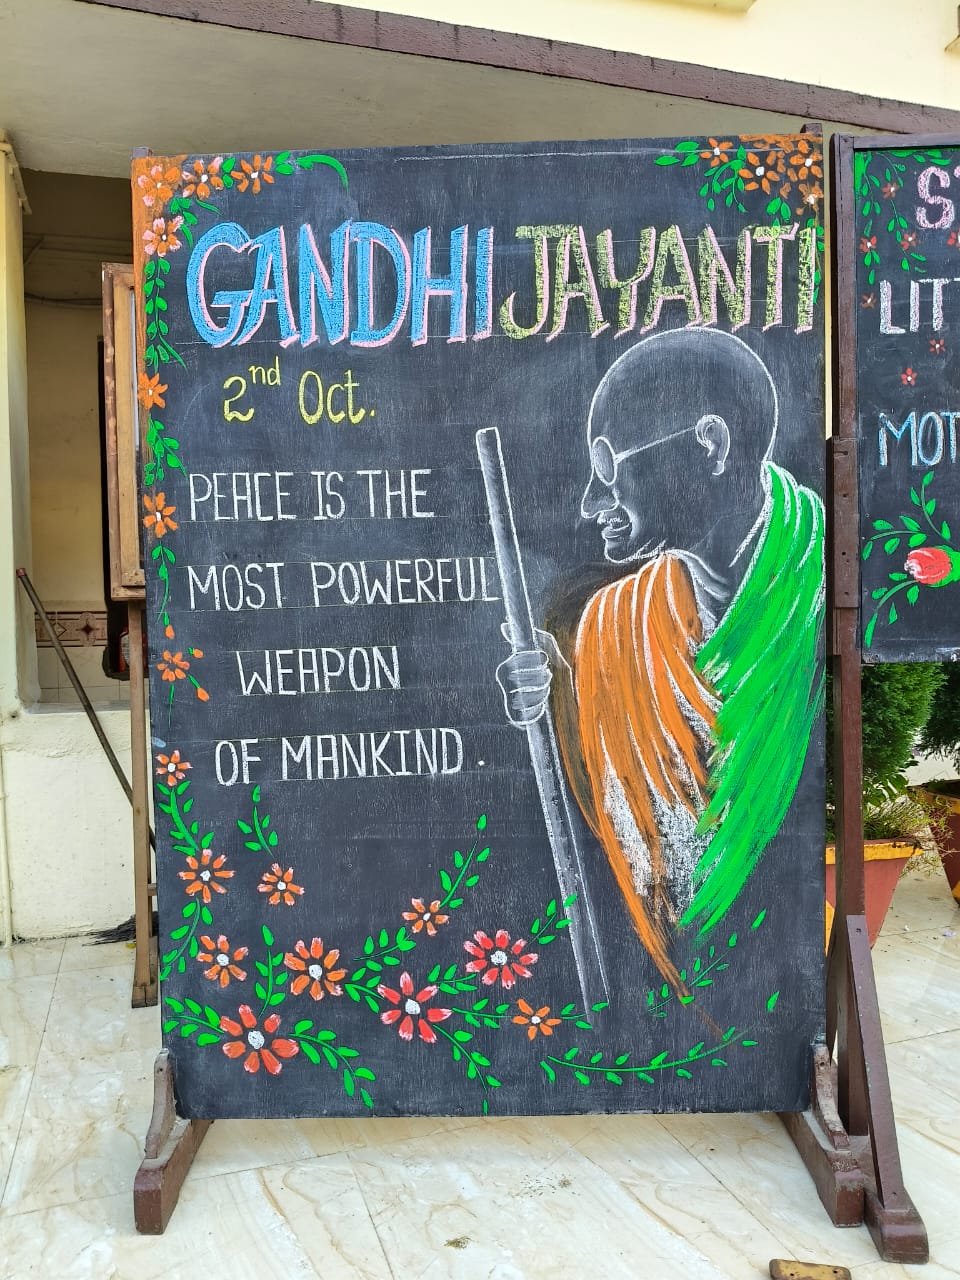 GANDHI JAYANTI
2nd Oct.
PEACE IS THE
MOST POWERFUL
WEAPON
OF MANKIND.